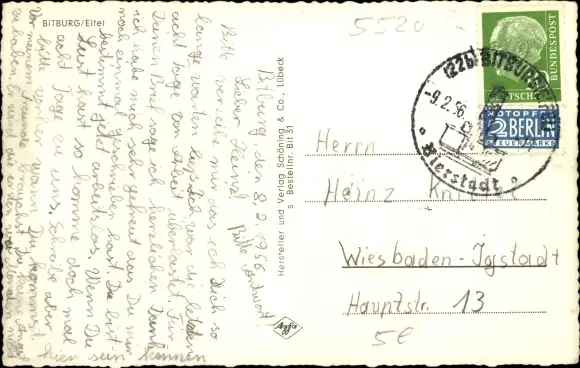 BITBURG/Eifel
5520
Bitburg, den 8.2.1956.
Lieber Heinz! Bitte Antwort!
Bitte verzeihe mir, das ich Dich so
lange warten ließ. Ich war die letzten
acht Tage von Arbeit überlastet. Für
Deinen Brief sage ich herzlichen Dank
ich habe mich sehr gefreut das Du mir
noch einmal geschrieben hast. Du bist
bestimmt jetzt arbeitslos. Wenn Du
Lust hast so komme doch mal
acht Tage zu uns. Schreibe aber
bitte vorher wann Du kommst
Vor meinem Freunde
zu haben
hier sein können
Hersteller und Verlag Schöning & Co., Lübeck
s Bestellnr. Bit 31
Agfa
(22b) BITBURG
-9.2.56
Bierstadt
DEUTSCHE BUNDESPOST
NOTOPFER
2 BERLIN
STEUERMARKE
Herrn
Heinz
Wiesbaden-Igstadt
Hauptstr. 13
5€